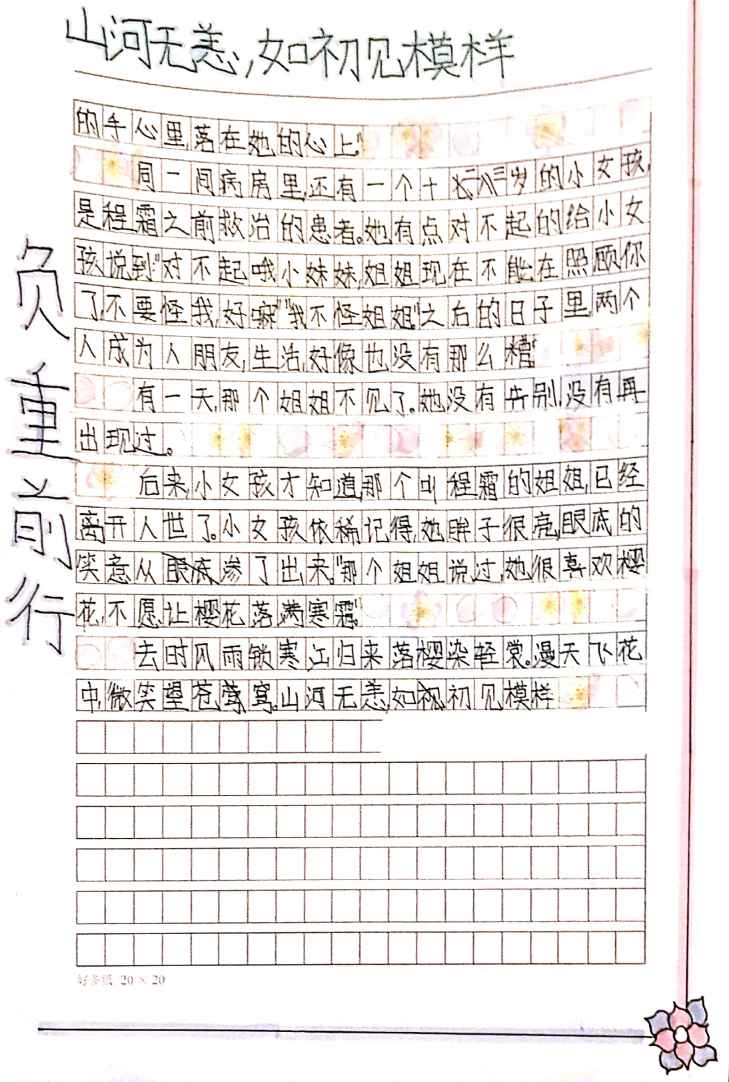 山河无恙,如初见模样
负重前行
的手心里,落在她的心上。"
同一间病房里,还有一个十二三岁的小女孩,
是程霜之前救治的患者。她有点对不起的给小女
孩说到:"对不起哦小妹妹,姐姐现在不能在照顾你
了,不要怪我,好嘛""我不怪姐姐"之后的日子里,两个
人成为人朋友,生活,好像也没有那么糟。
有一天,那个姐姐不见了。她没有告别,没有再
出现过。
后来,小女孩才知道,那个叫程霜的姐姐,已经
离开人世了。小女孩依稀记得,她眸子很亮,眼底的
笑意从眼底渗了出来,"那个姐姐说过,她很喜欢樱
花,不愿让樱花落满寒霜。"
去时风雨锁寒江,归来落樱染轻裳。漫天飞花
中,微笑望苍莺穹。山河无恙,如初见模样
好多纸 20×20